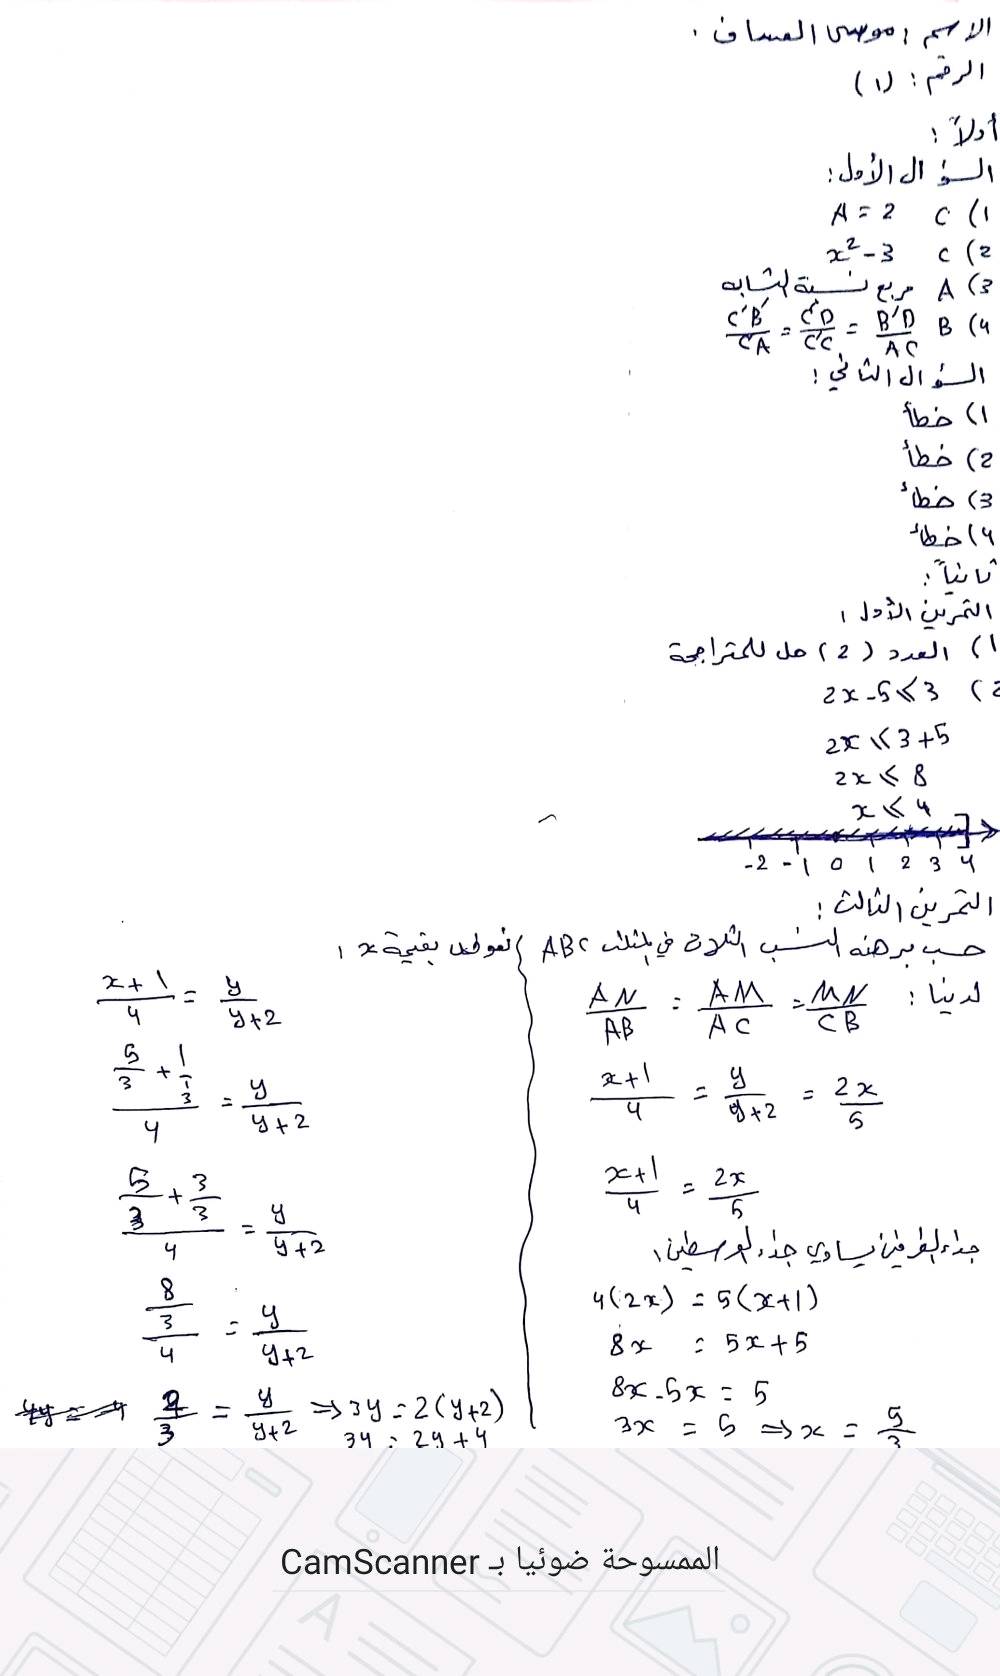 الاسم : موسى العساف .
الرقم : (1)
أولاً :
السؤال الأول :
1) C A = 2
2) C x² - 3
3) A مربع نسبة التشابه
4) B B'D/AC = C'D/C'C = C'B'/C'A
السؤال الثاني :
1) خطأ
2) خطأ
3) خطأ
4) خطأ
ثانياً :
التمرين الأول :
1) العدد (2) حل للمتراجحة
2) 2x - 5 ⩽ 3
2x ⩽ 3 + 5
2x ⩽ 8
x ⩽ 4
-2 -1 0 1 2 3 4
التمرين الثالث :
حسب مبرهنة النسب الثلاث في المثلث ABC
لدينا : AN/AB = AM/AC = MN/CB
x+1/4 = y/y+2 = 2x/5
x+1/4 = 2x/5
جداء الطرفين يساوي جداء الوسطين
4(2x) = 5(x+1)
8x = 5x + 5
8x - 5x = 5
3x = 5 ⇒ x = 5/3
نعوض بقيمة x :
x+1/4 = y/y+2
5/3 + 1/1/4 = y/y+2
5/3 + 3/3/4 = y/y+2
8/3/4 = y/y+2
2/3 = y/y+2 ⇒ 3y = 2(y+2)
3y = 2y + 4
الممسوحة ضوئيا بـ CamScanner